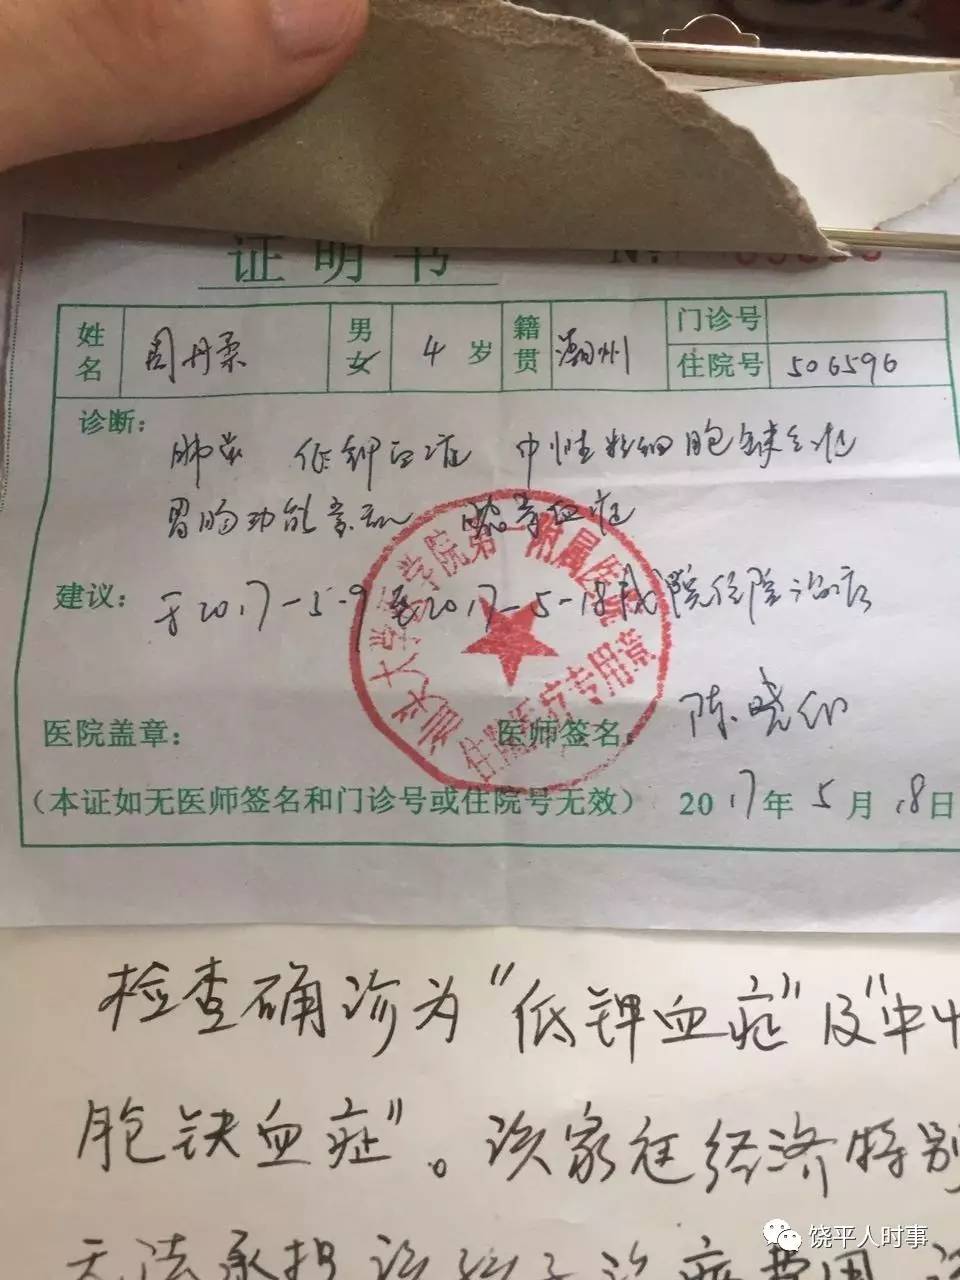 证明书 №
姓名 周丹柔 男女 4岁 籍贯 潮州 门诊号
住院号 506596
诊断:
肺炎 低钾血症 中性粒细胞缺乏症
胃肠功能紊乱 脓毒血症
建议: 于2017-5-9至2017-5-18我院住院治疗
汕头大学医学院第一附属医院
住院医疗专用章
医院盖章: 医师签名:陈晓
(本证如无医师签名和门诊号或住院号无效) 2017年5月18日
检查确诊为"低钾血症"及"中性
胞缺血症"。该家庭经济特别
无法承担该孩子治疗费用
饶平人时事